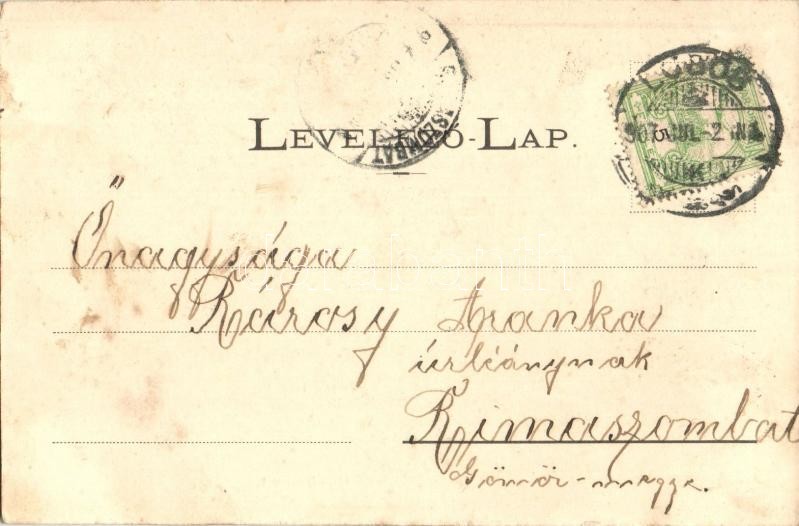 LEVELEZŐ-LAP.
Őnagysága
Rárosy Aranka
úrleánynak
Rimaszombat
Gömör-megye.